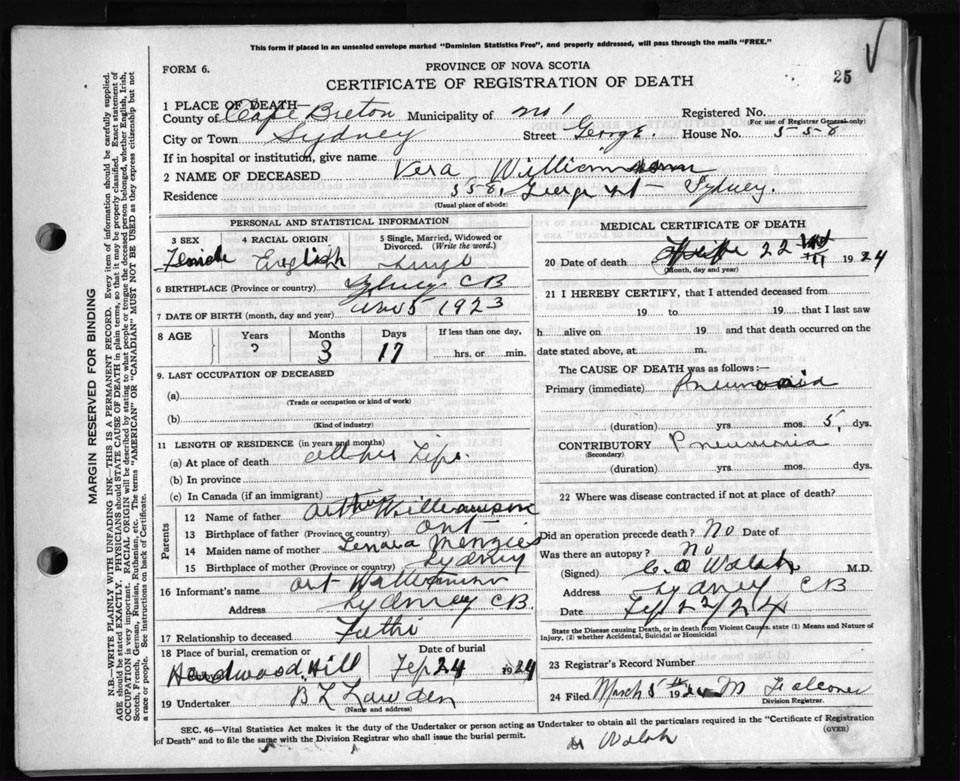 This form if placed in an unsealed envelope marked "Dominion Statistics Free", and properly addressed, will pass through the mails "FREE."
FORM 6.
PROVINCE OF NOVA SCOTIA
25
CERTIFICATE OF REGISTRATION OF DEATH
1 PLACE OF DEATH—
County of Cape Breton Municipality of Registered No.
(For use of Registrar General only)
City or Town Sydney Street George House No. 558
If in hospital or institution, give name
2 NAME OF DECEASED Vera Williamson
Residence 558 George St Sydney.
(Usual place of abode)
PERSONAL AND STATISTICAL INFORMATION
3 SEX 4 RACIAL ORIGIN 5 Single, Married, Widowed or Divorced. (Write the word.)
Female English Single
6 BIRTHPLACE (Province or country) Sydney CB
7 DATE OF BIRTH (month, day and year) Nov 5 1923
8 AGE Years Months Days If less than one day,
3 17 hrs. or min.
9. LAST OCCUPATION OF DECEASED
(a)
(Trade or occupation or kind of work)
(b)
(Kind of industry)
11 LENGTH OF RESIDENCE (in years and months)
(a) At place of death all her Life
(b) In province
(c) In Canada (if an immigrant)
Parents
12 Name of father Arthur Williamson
13 Birthplace of father (Province or country) Ont
14 Maiden name of mother Menzies
15 Birthplace of mother (Province or country) Sydney
16 Informant's name Art Williamson
Address Sydney CB.
17 Relationship to deceased Father
18 Place of burial, cremation or Date of burial
Hardwood Hill Feb 24 1924
19 Undertaker B L Lowden
(Name and address)
MEDICAL CERTIFICATE OF DEATH
20 Date of death 22 1924
(Month, day and year)
21 I HEREBY CERTIFY, that I attended deceased from
19 to 19 that I last saw
h alive on 19 and that death occurred on the
date stated above, at m.
The CAUSE OF DEATH was as follows:—
Primary (immediate) Pneumonia
(duration) yrs. mos. 5 dys.
CONTRIBUTORY Pneumonia
(Secondary)
(duration) yrs. mos. dys.
22 Where was disease contracted if not at place of death?
Did an operation precede death? No Date of
Was there an autopsy? no
(Signed) Walsh M.D.
Address Sydney CB
Date Feb 22/24
State the Disease causing Death, or in death from Violent Causes, state (1) Means and Nature of Injury, (2) whether Accidental, Suicidal or Homicidal
23 Registrar's Record Number
24 Filed March 5th 1924 M Falconer
Division Registrar.
SEC. 46—Vital Statistics Act makes it the duty of the Undertaker or person acting as Undertaker to obtain all the particulars required in the "Certificate of Registration
of Death" and to file the same with the Division Registrar who shall issue the burial permit.
(OVER)
Dr Walsh
MARGIN RESERVED FOR BINDING
N.B.—WRITE PLAINLY WITH UNFADING INK—THIS IS A PERMANENT RECORD. Every item of information should be carefully supplied.
AGE should be stated EXACTLY. PHYSICIANS should STATE CAUSE OF DEATH in plain terms, so that it may be properly classified. Exact statement of
OCCUPATION is very important. RACIAL ORIGIN will be described by stating to what people or tongue the deceased person belonged, whether English, Irish,
Scotch, French, German, Russian, Ruthenian, etc. The terms "AMERICAN" OR "CANADIAN" MUST NOT BE USED as they express citizenship but not
a race or people. See instructions on back of Certificate.